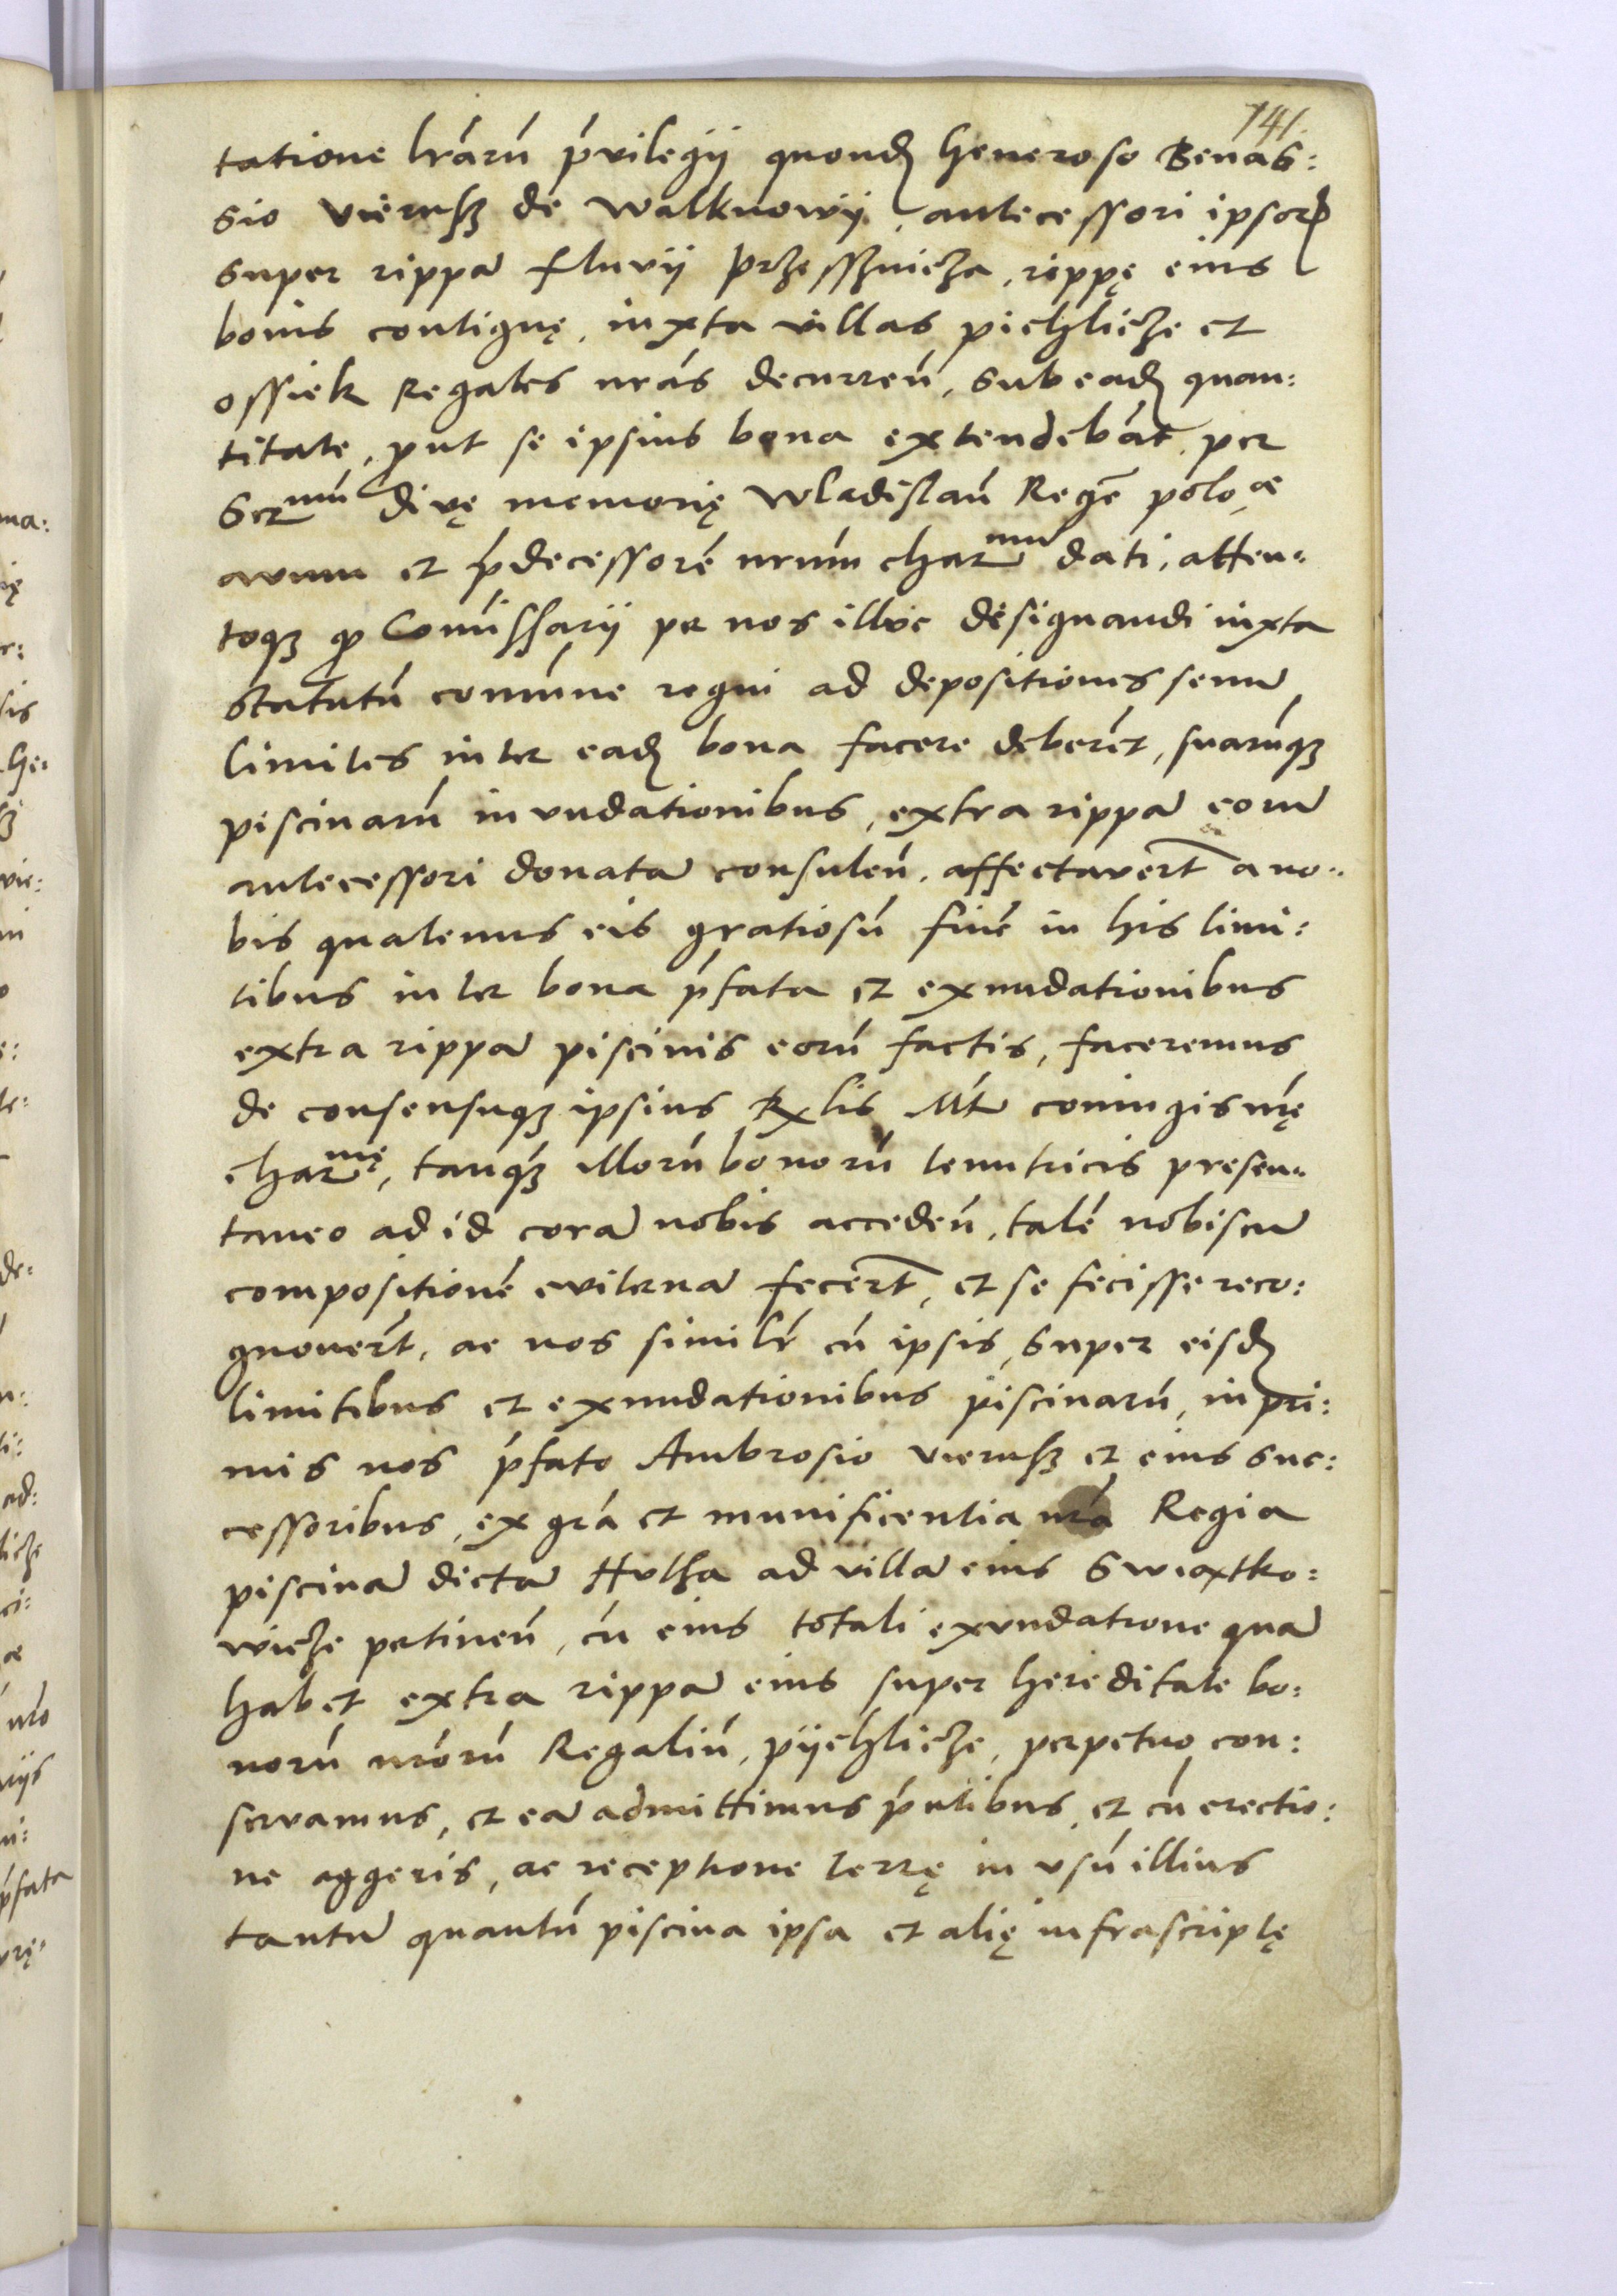 141.
tatione lr̄arū p̄vilegij quonđ Generoso Benas:
sio vierusȝ de walknowij, antecessori ipsoꝝ
super rippā fluvij przesshnicza, rippę eius
bonis contiguę, iuxta villas pichlicze et
ossiek Regales nr̄as decurreñ, sub eađ quan:
titate, ꝓut se ipsius bona extendebāt, per
Serᵐᵘ̄ divę memorię wladislaū Regē polo.ᵉ
avum et p̄decessorē nrūm charᵐᵘ̄ dati, atten:
toqȝ ꝙ Com̄issarij per nos illuc designandi iuxta
statutū com̄une regni ad depositiones senū
limites inter eađ bona facere deberēt, suarūqȝ
piscinarū inundationibus, extra rippā eorū
antecessori donatā consuleñ, affectaver̄t a no:
bis quatenus eis gratiosū finē in his limi:
tibus inter bona p̄fata et exundationibus
extra rippā piscinis eorū factis, faceremus
de consensuqȝ ipsius Rx̄lis Mtī coniugis nr̄ę
charᵐę, tanqȝ illorū bonorū tenutricis presen:
taneo ad id corā nobis accedeñ, talē nobiscū
compositionē eviternā fecer̄t, et se fecisse reco:
gnouer̄t, ac nos similr̄ cū ipsis, super eisđ
limitibus et exundationibus piscinarū, in pri:
mis nos p̄fato Ambrosio vierusȝ et eius suc:
cessoribus, ex gr̄a et munificentia nr̄a Regia
piscinā dictā Hulȝa ad villā eius Swiatko:
wicze pertineñ, cū eius totali exundatione quā
habet extra rippā eius super hereditate bo:
norū nr̄orū Regaliū, pijchlicze, perpetuo con:
servamus, et eā admittimus p̄ntibus, et cū erectio:
ne aggeris, ac receptione terrę in usū illius
tantū quantū piscina ipsa et alię infrascriptę